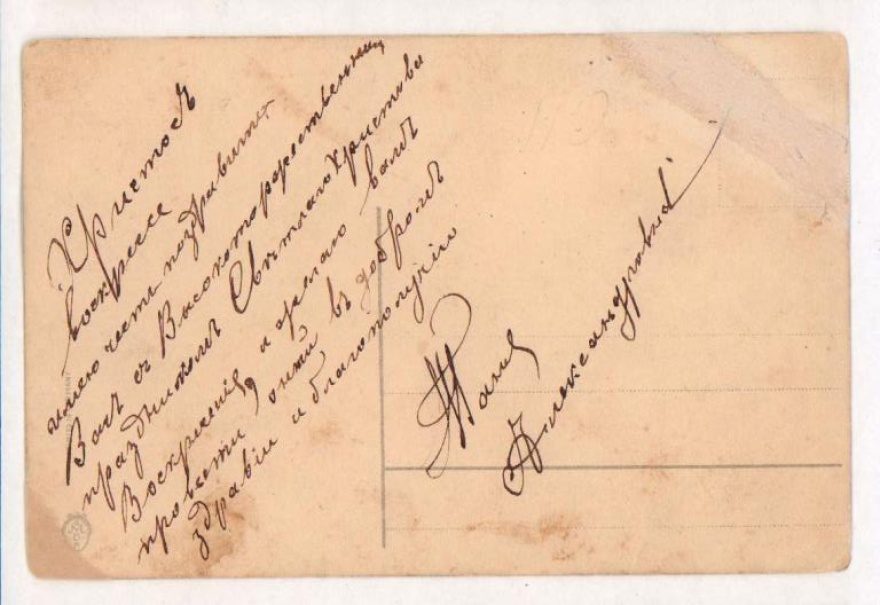 Христосъ
воскресе
имею честь поздравить
Васъ съ Высокоторжественнымъ
праздникомъ Светлаго Христова
Воскресенія и желаю вамъ
провести оный въ добромъ
здравіи и благополучіи
Таня
Александровна